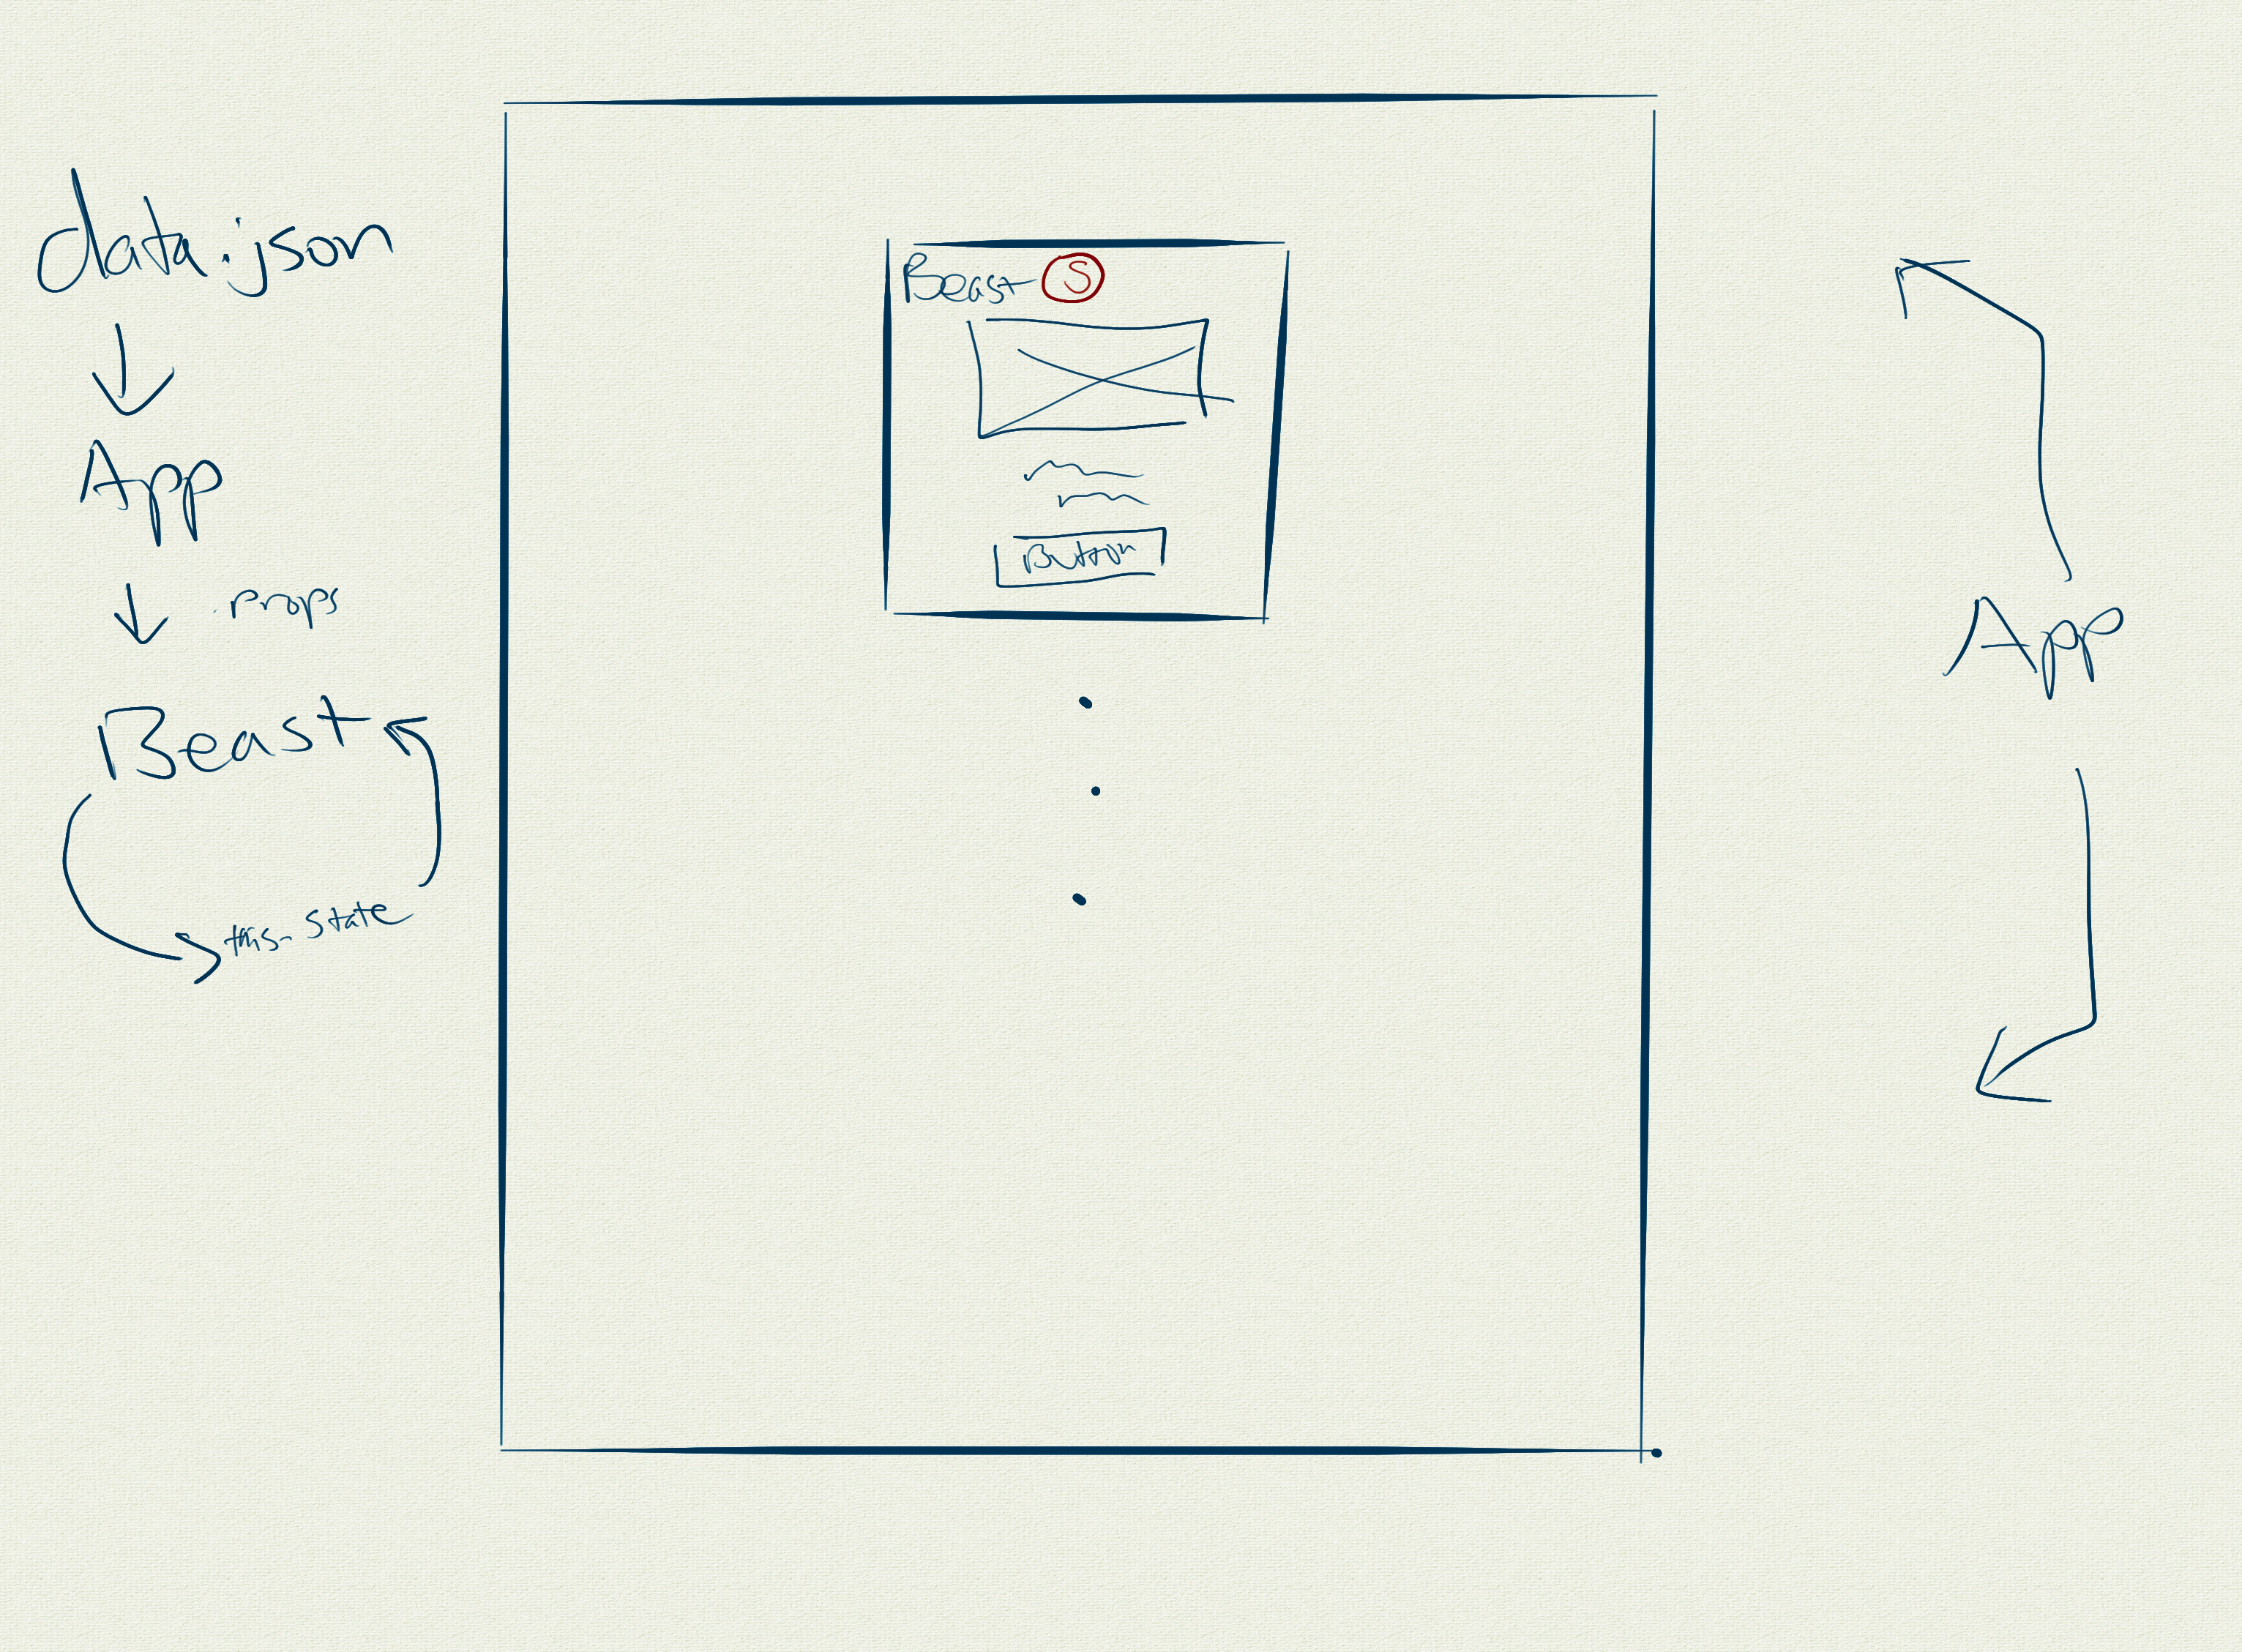 data.json
App
props
Beast
this.state
Beast S
Button
App